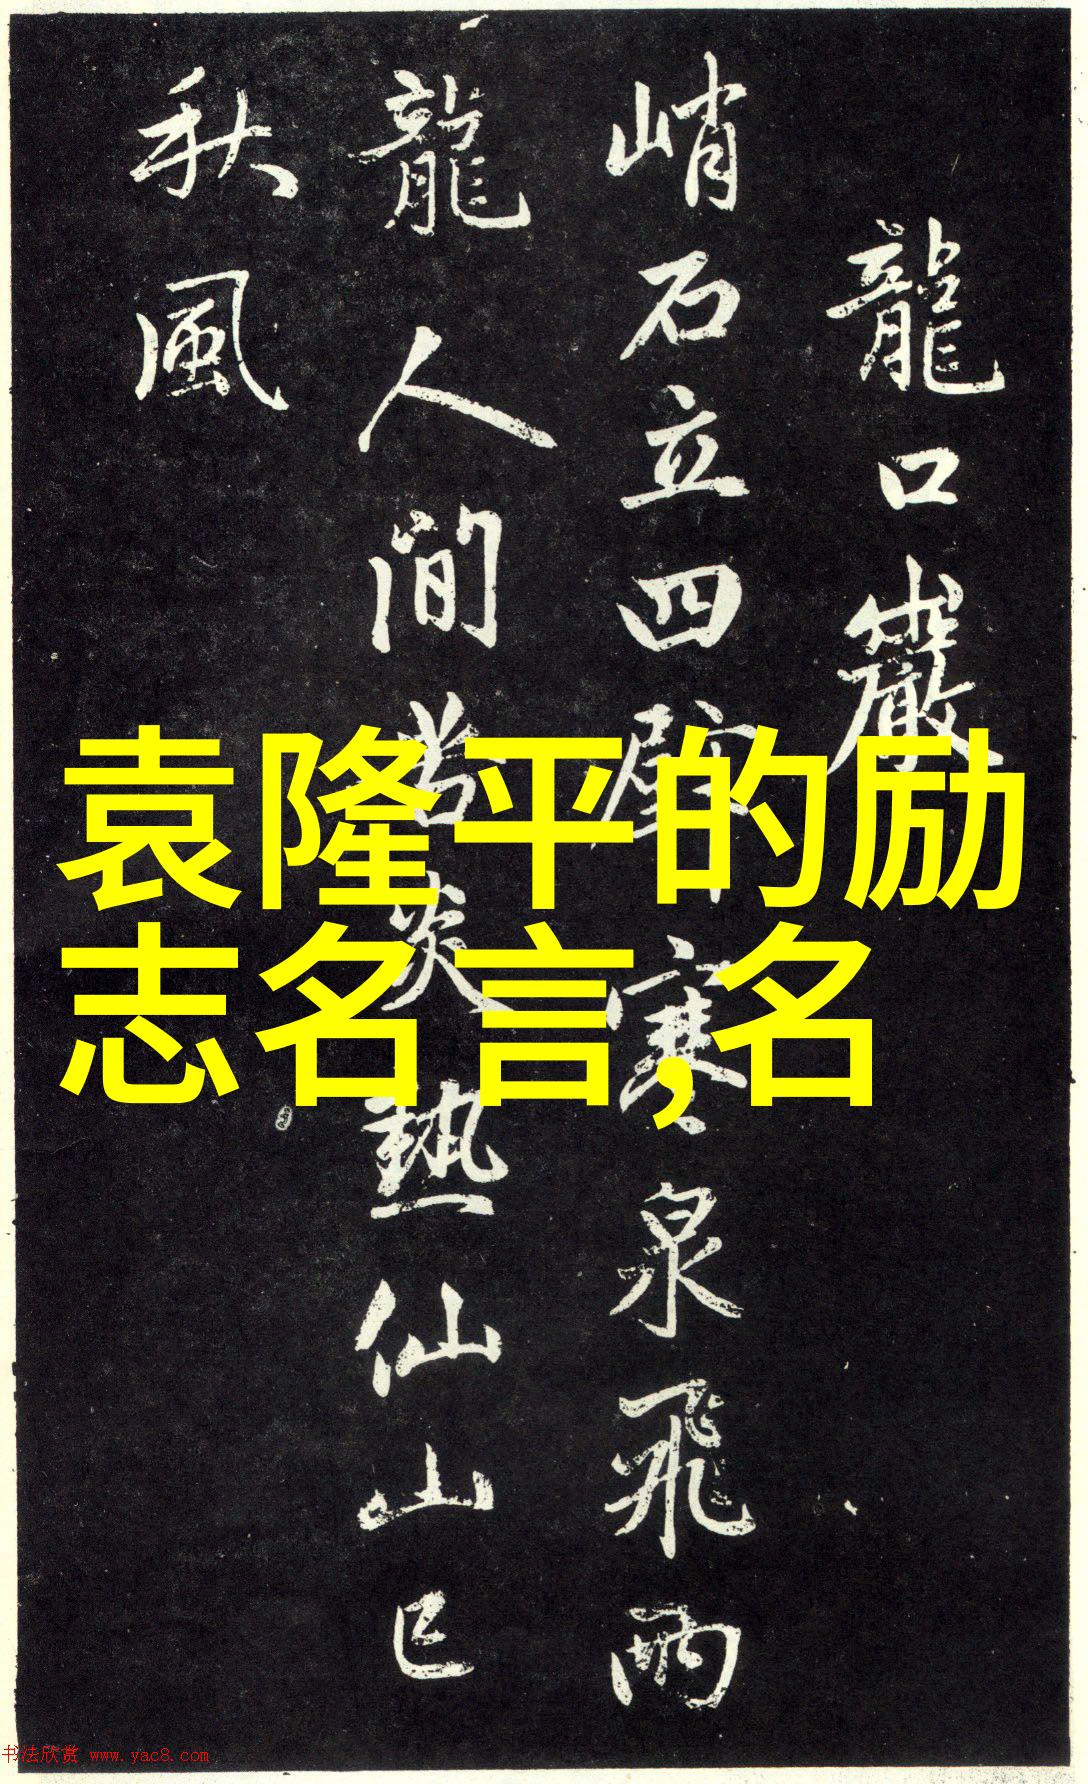 龍口巖
峭石立四壁寒泉飛雨
龍人間苦炎熱仙山已
秋風
袁隆平的励
志名言,名
书法欣赏 www.yac8.com